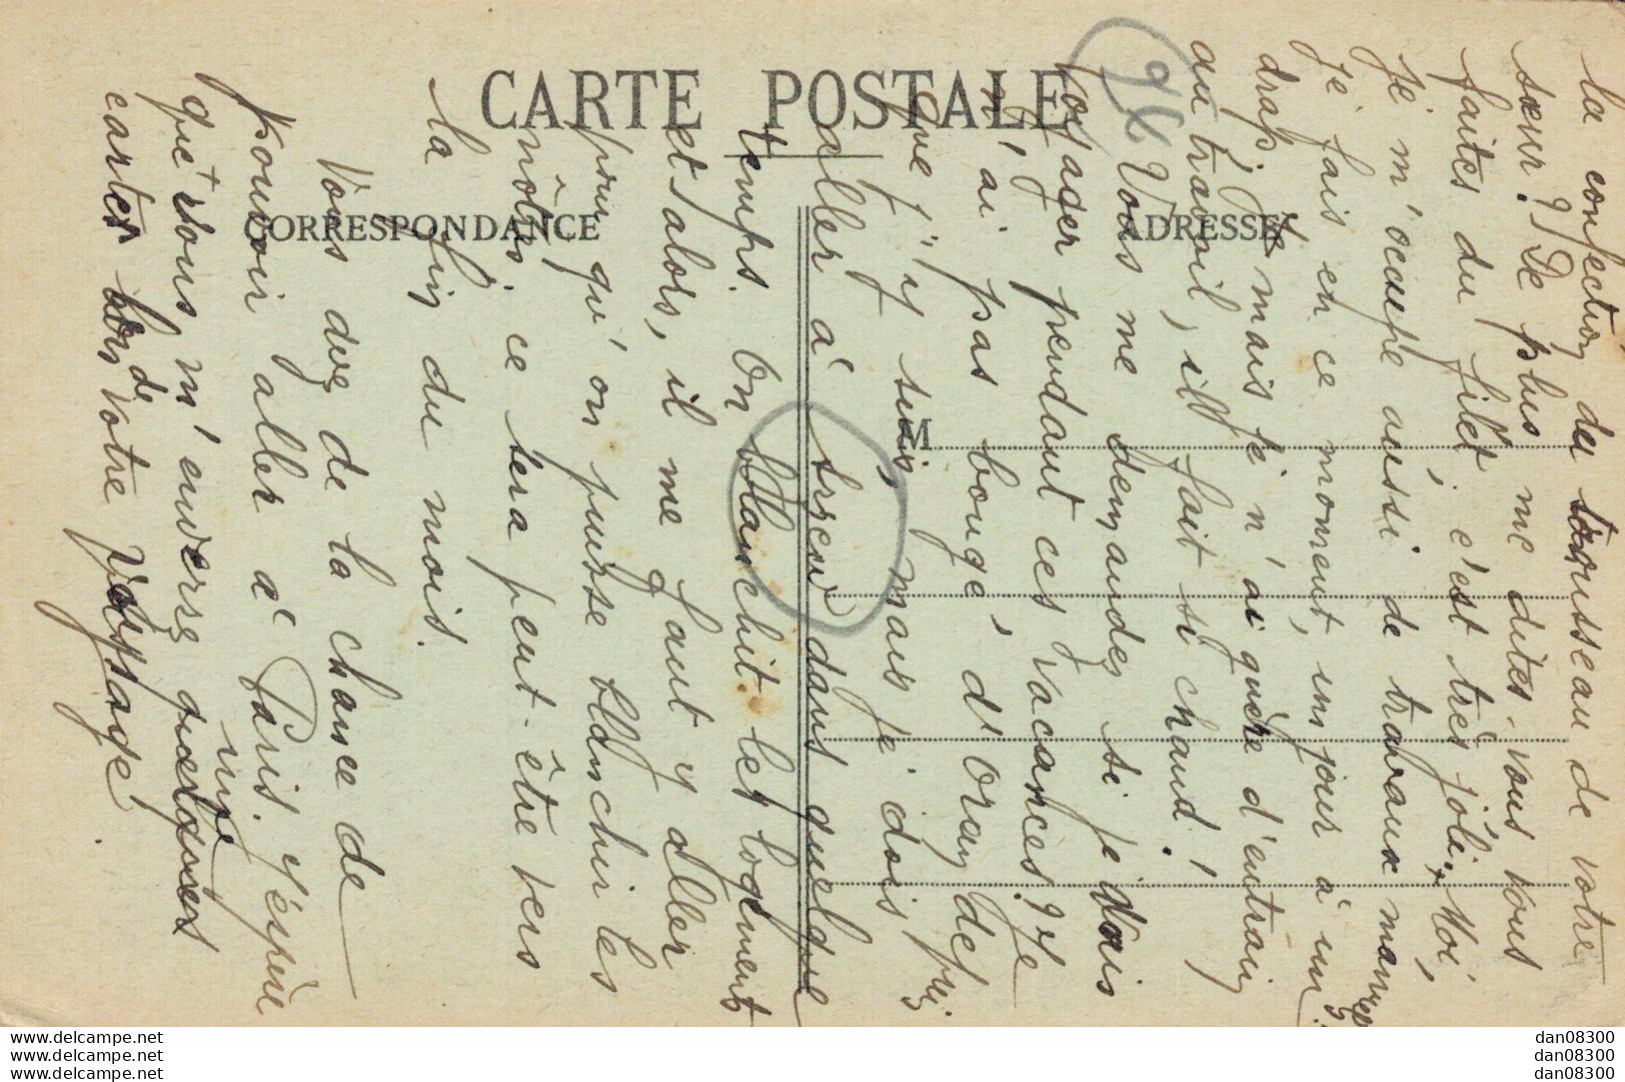 CARTE POSTALE
CORRESPONDANCE
ADRESSE
M
la confection du trousseau de votre
sœur? De plus me dites-vous vous
faites du filet, c'est très joli. Moi,
je m'occupe aussi de travaux manuels
je fais en ce moment, un jour à un
drap, mais je n'ai guère d'entrain
au travail, il fait si chaud!
Vous me demandez si je vais
voyager pendant ces vacances? Je
n'ai pas bougé d'Oran depuis
que j'y suis, mais je dois
aller à Arzew dans quelque
temps. On blanchit les logements
et alors, il me faut y aller
pour qu'on puisse blanchir les
nôtres. ce sera peut-être vers
la fin du mois.
Vous avez de la chance de
pouvoir aller à Paris. J'espère
que vous m'enverrez une
cartes de votre voyage.
96
dan08300
dan08300
dan08300
www.delcampe.net
www.delcampe.net
www.delcampe.net